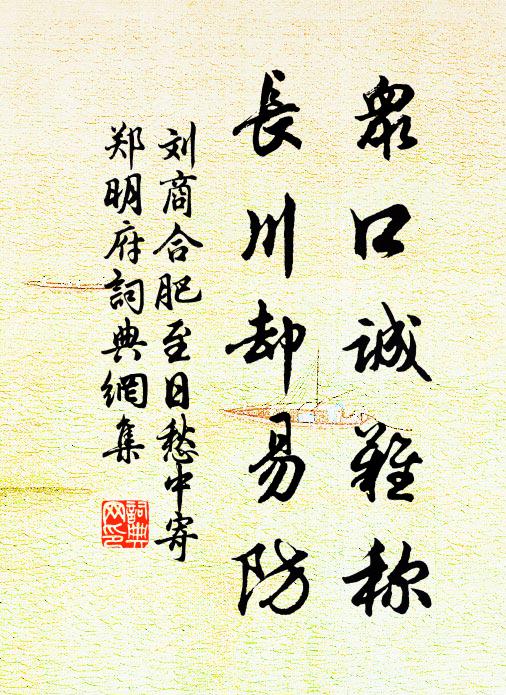 衆口誠難称
長川却易防
刘商合肥至日愁中寄
郑明府詞典網集
詞典网印